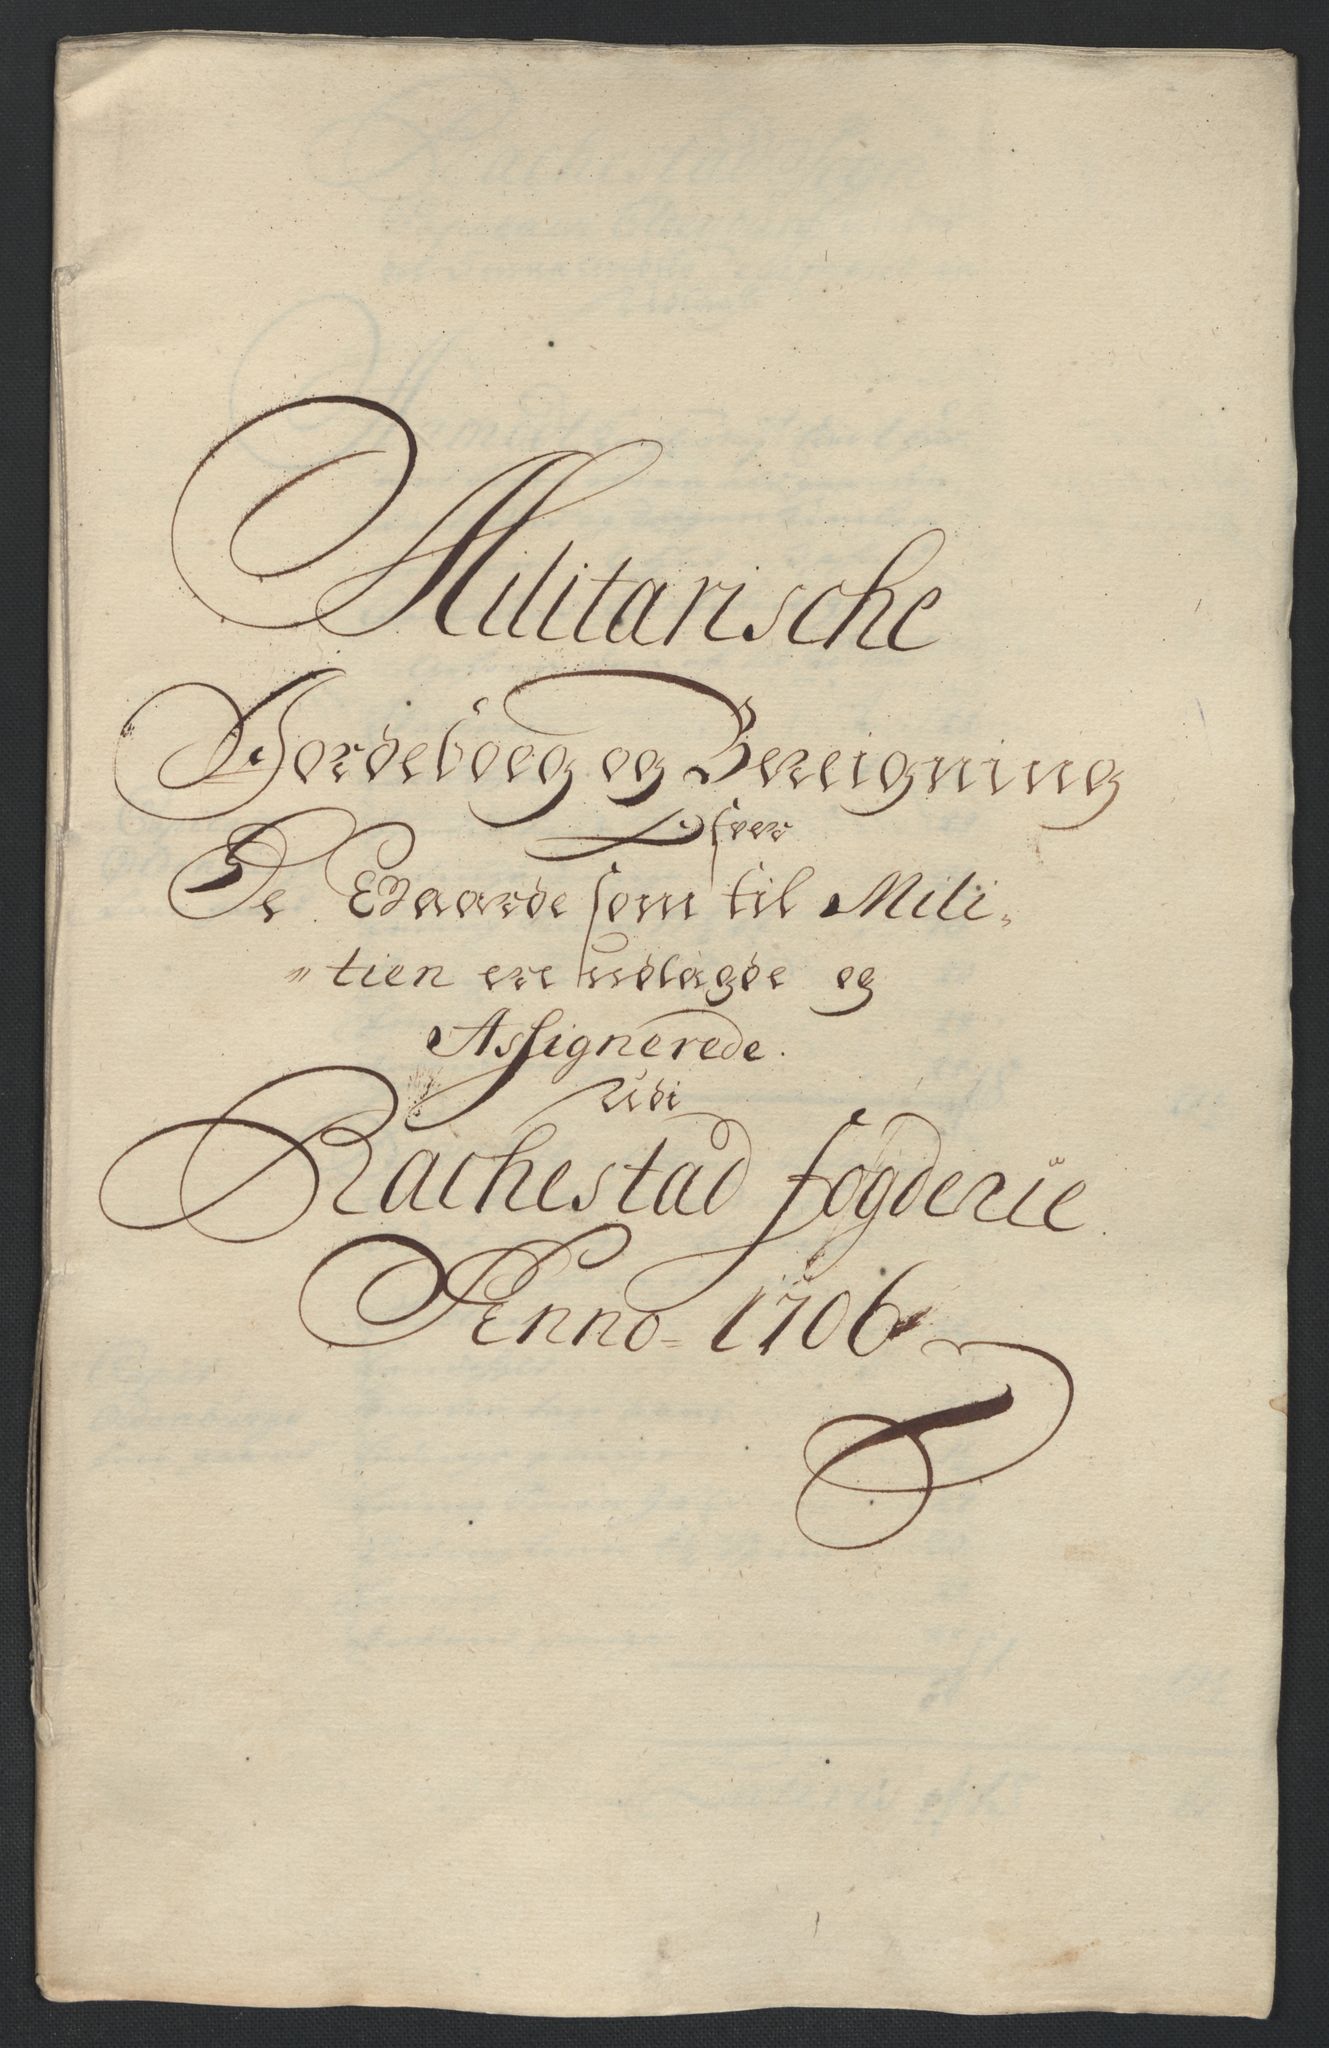 Militarische
Jordeboeg og Bereigning
Ofver
De Gaarde som til Mili-
tien ere udlagde og
Assignerede.
udi
Rachestad fogderie
Anno - 1706